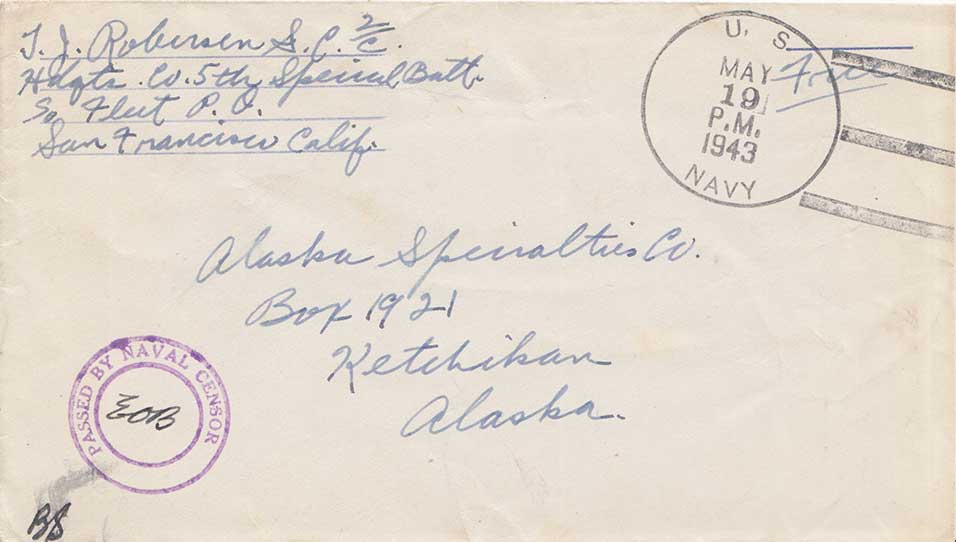 T. J. Robersen S. C. 2/c.
Hdqts. Co. 5th Special Batt.
℅ Fleet P. O.
San Francisco Calif.
U. S.
MAY
19
P.M.
1943
NAVY
Free
Alaska Specialties Co.
Box 1921
Ketchikan
Alaska.
PASSED BY NAVAL CENSOR
EOB
BS